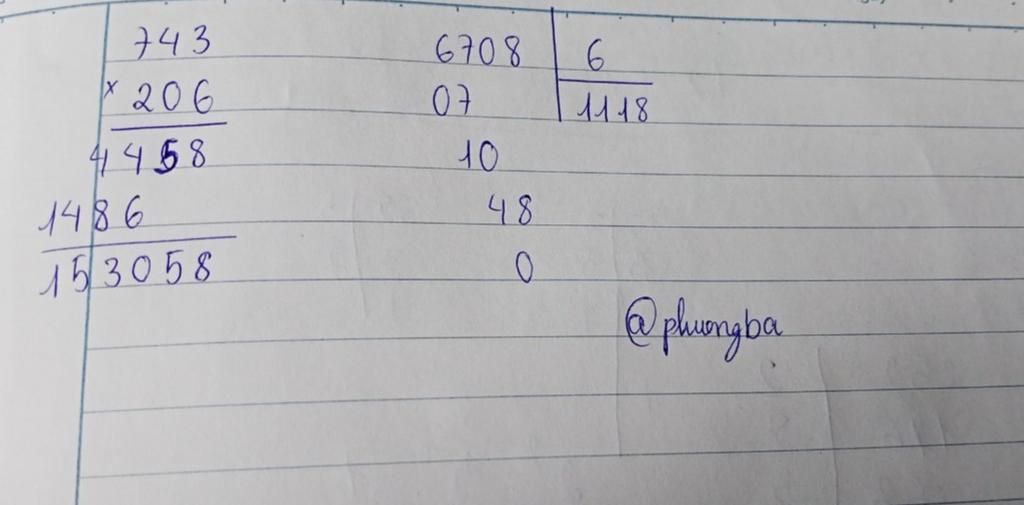 743
× 206
4458
1486
153058
6708 6
07 1118
10
48
0
@phuongba